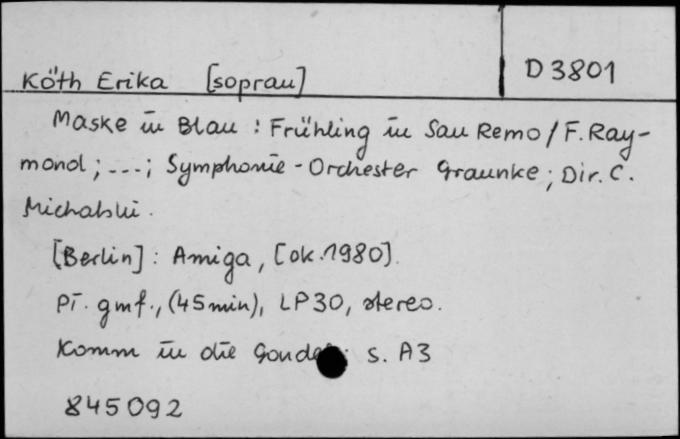 Köth Erika [sopran]
D 3801
Maske in Blau : Frühling in San Remo / F. Ray-
mond ; ---; Symphonie - Orchester Graunke ; Dir. C.
Michalski.
[Berlin] : Amiga, [ok. 1980].
Pł. gmf., (45 min), LP 30, stereo.
Komm in die Gondel : s. A3
845092